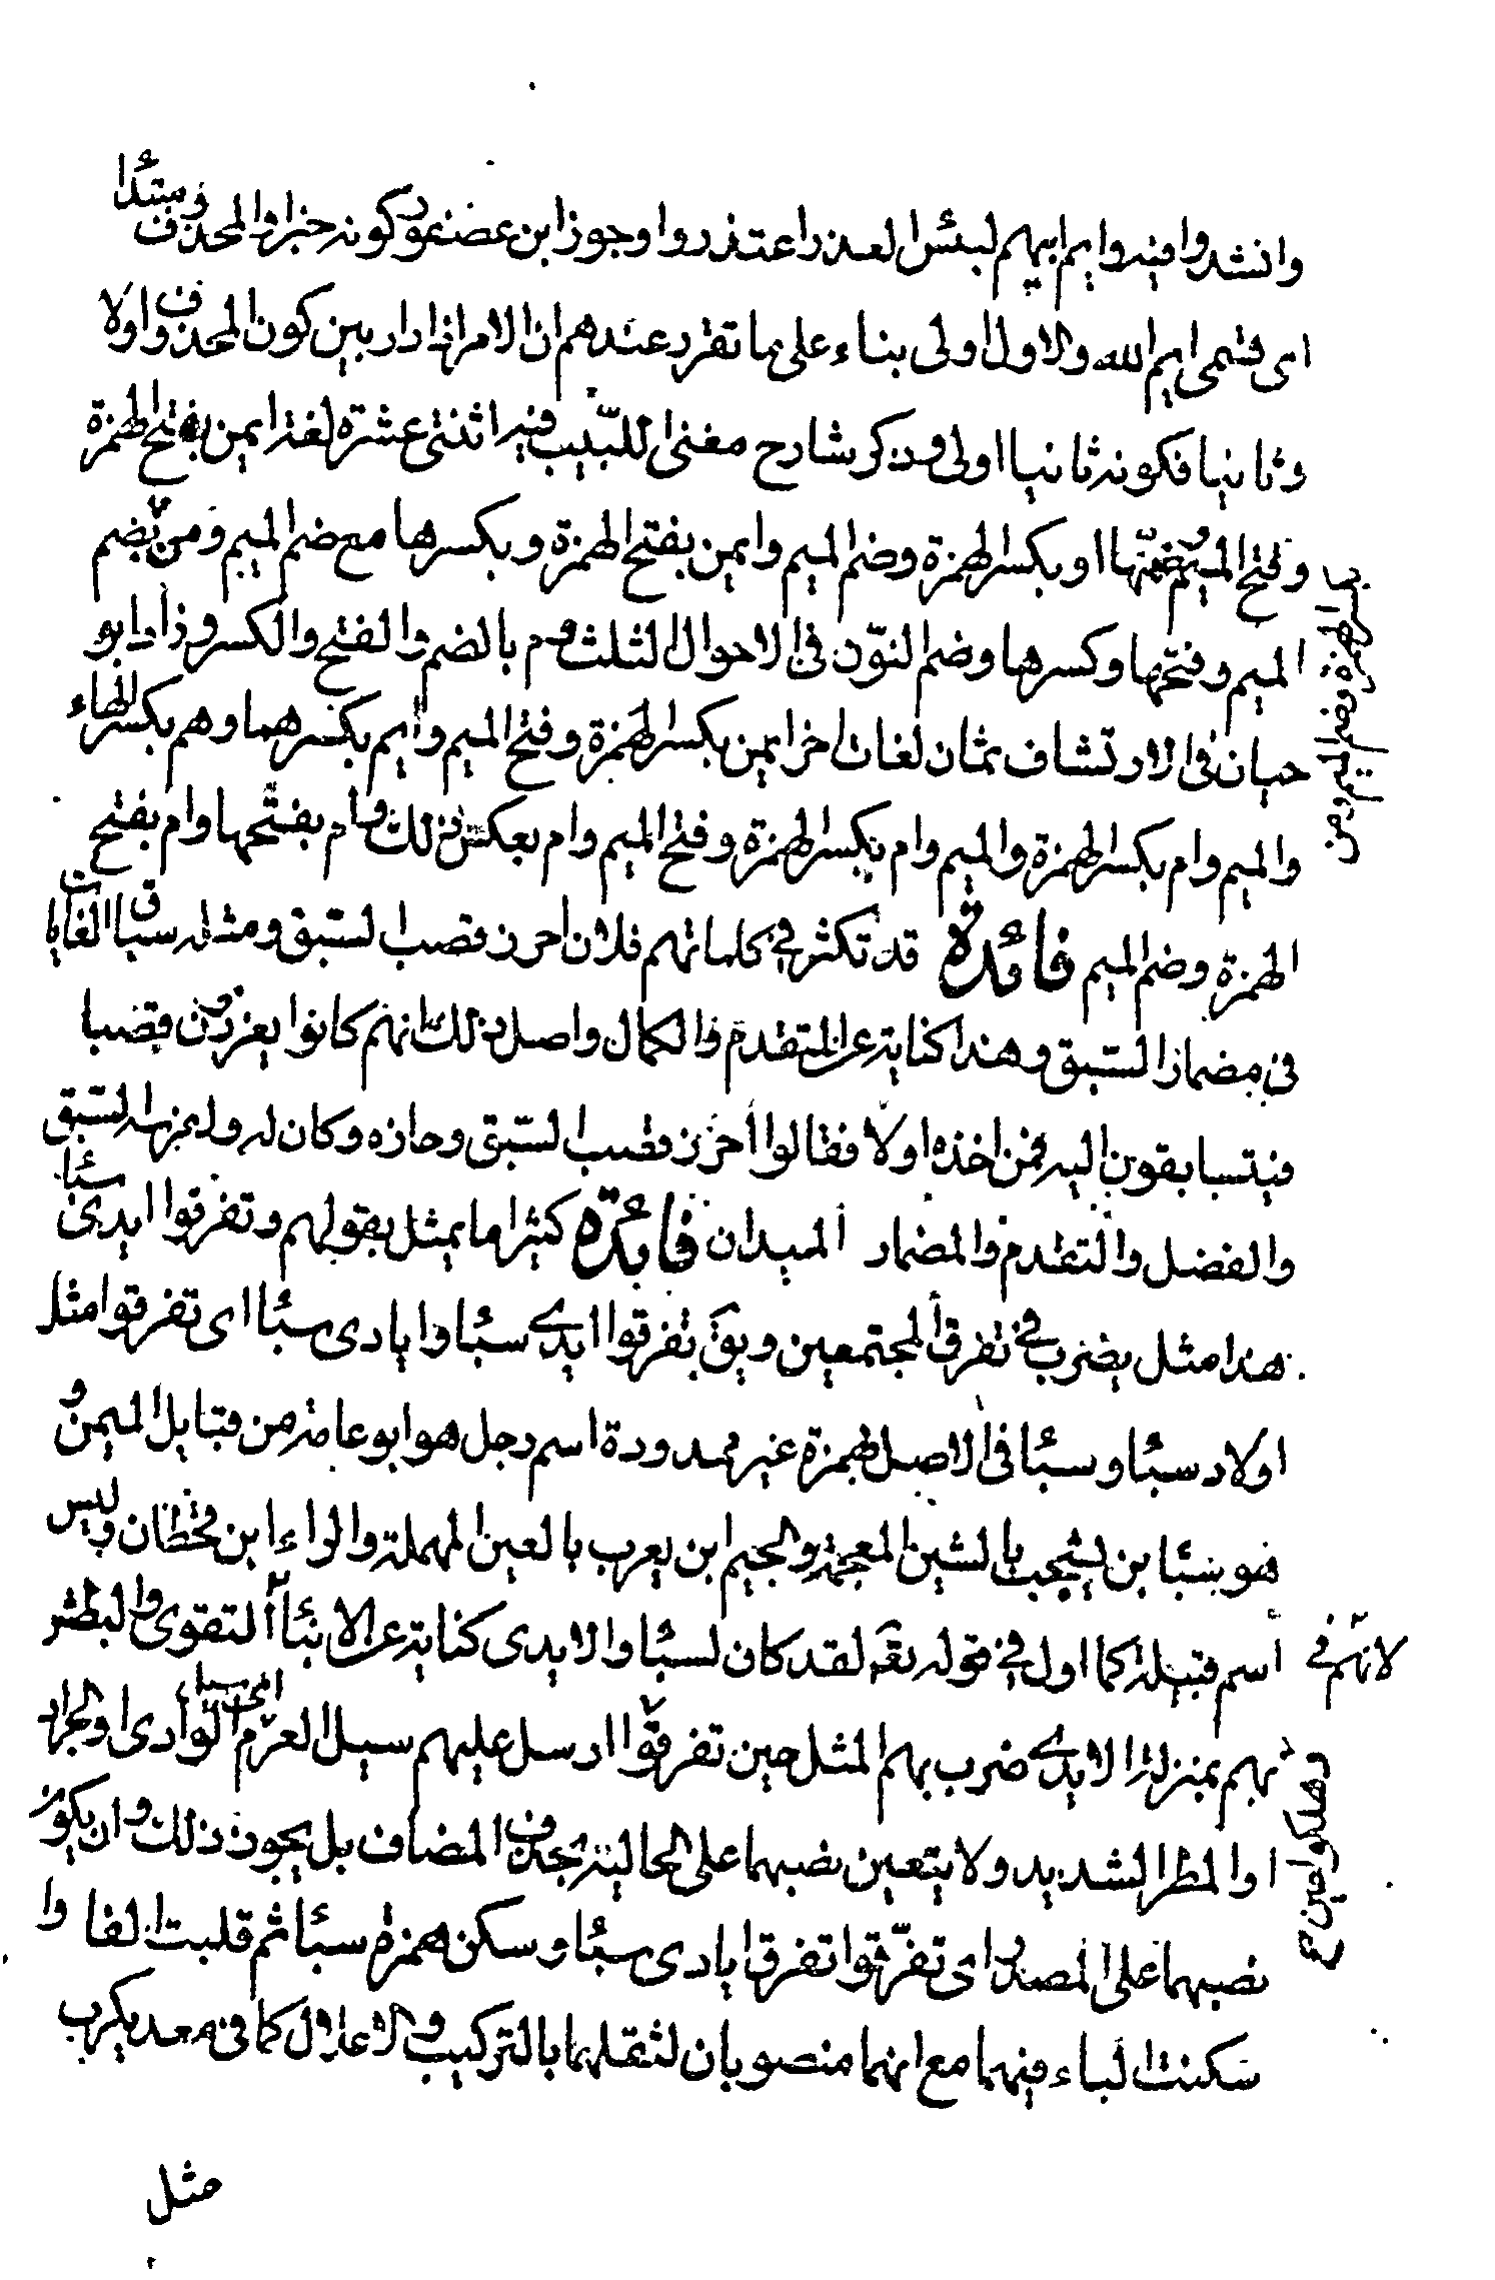 وانشدوا فيه وايم ابيهم لبئس العذر اعتذروا وجوز ابن عصفور كونه خبرا والمحذوف مبتدا
اى قسمى ايم الله والاول اولى بناء على ما تقرر عندهم ان الامر اذا دار بين كون المحذوف اولا
وثانيا فكونه ثانيا اولى وذكر شارح مغنى اللبيب فيه اثنتى عشرة لغة ايمن بفتح الهمزة
وفتح الميم وضمها او بكسر الهمزة وضم الميم وايمن بفتح الهمزة وبكسرها مع ضم الميم ومن بضم
الميم وفتحها وكسرها وضم النون فى الاحوال الثلث وم بالضم والفتح والكسر وزاد ابو
حيان فى الارتشاف ثمان لغات اخر ايمن بكسر الهمزة وفتح الميم وايم بكسرهما وهم بكسر الهاء
والميم وام بكسر الهمزة والميم وام بكسر الهمزة وفتح الميم وام بعكس ذلك وام بفتحها وام بفتح
الهمزة وضم الميم فائدة قد تكثر فى كلماتهم فلان احرز قصب السبق ومثله سباق الغايات
فى مضمار السبق وهذا كناية عن المتقدم فى الكمال واصل ذلك انهم كانوا يغرزون قصبا
فيتسابقون اليه فمن اخذه اولا فقالوا احرز قصب السبق وحازه وكان له ولمزية السبق
والفضل والتقدم والمضمار الميدان فائدة كثيرا ما يمثل بقولهم وتفرقوا ايدى سبئا
هذا مثل يضرب فى تفرق المجتمعين ويق تفرقوا ايدى سبئا وايادى سبئا اى تفرقوا مثل
اولاد سبئا وسبئا فى الاصل بهمزة غير ممدودة اسم رجل هو ابو عامة من قبايل اليمن و
هو سبئا بن يشجب بالشين المعجمة والجيم ابن يعرب بالعين المهملة والراء ابن قحطان وليس
اسم قبيلة كما اول فى قوله تعه لقد كان لسبئا والايدى كناية عن الابناء لانهم فى التقوى والبطش
بهم بمنزلة الايدى ضرب بهم المثل حين تفرقوا ارسل عليهم سيل العرم اى سيل الوادى او الجراد
او المطر الشديد وهلكوا اجمعين ولا يتعين نصبهما على الحالية بحذف المضاف بل يجوز ذلك وان يكون
نصبهما على المصدر اى تفرقوا تفرق ايادى سبئا وسكن همزة سبئا ثم قلبت الفا وا
سكنت الياء فيهما مع انهما منصوبان لثقلهما بالتركيب والاعلال كما فى معديكرب
مثل